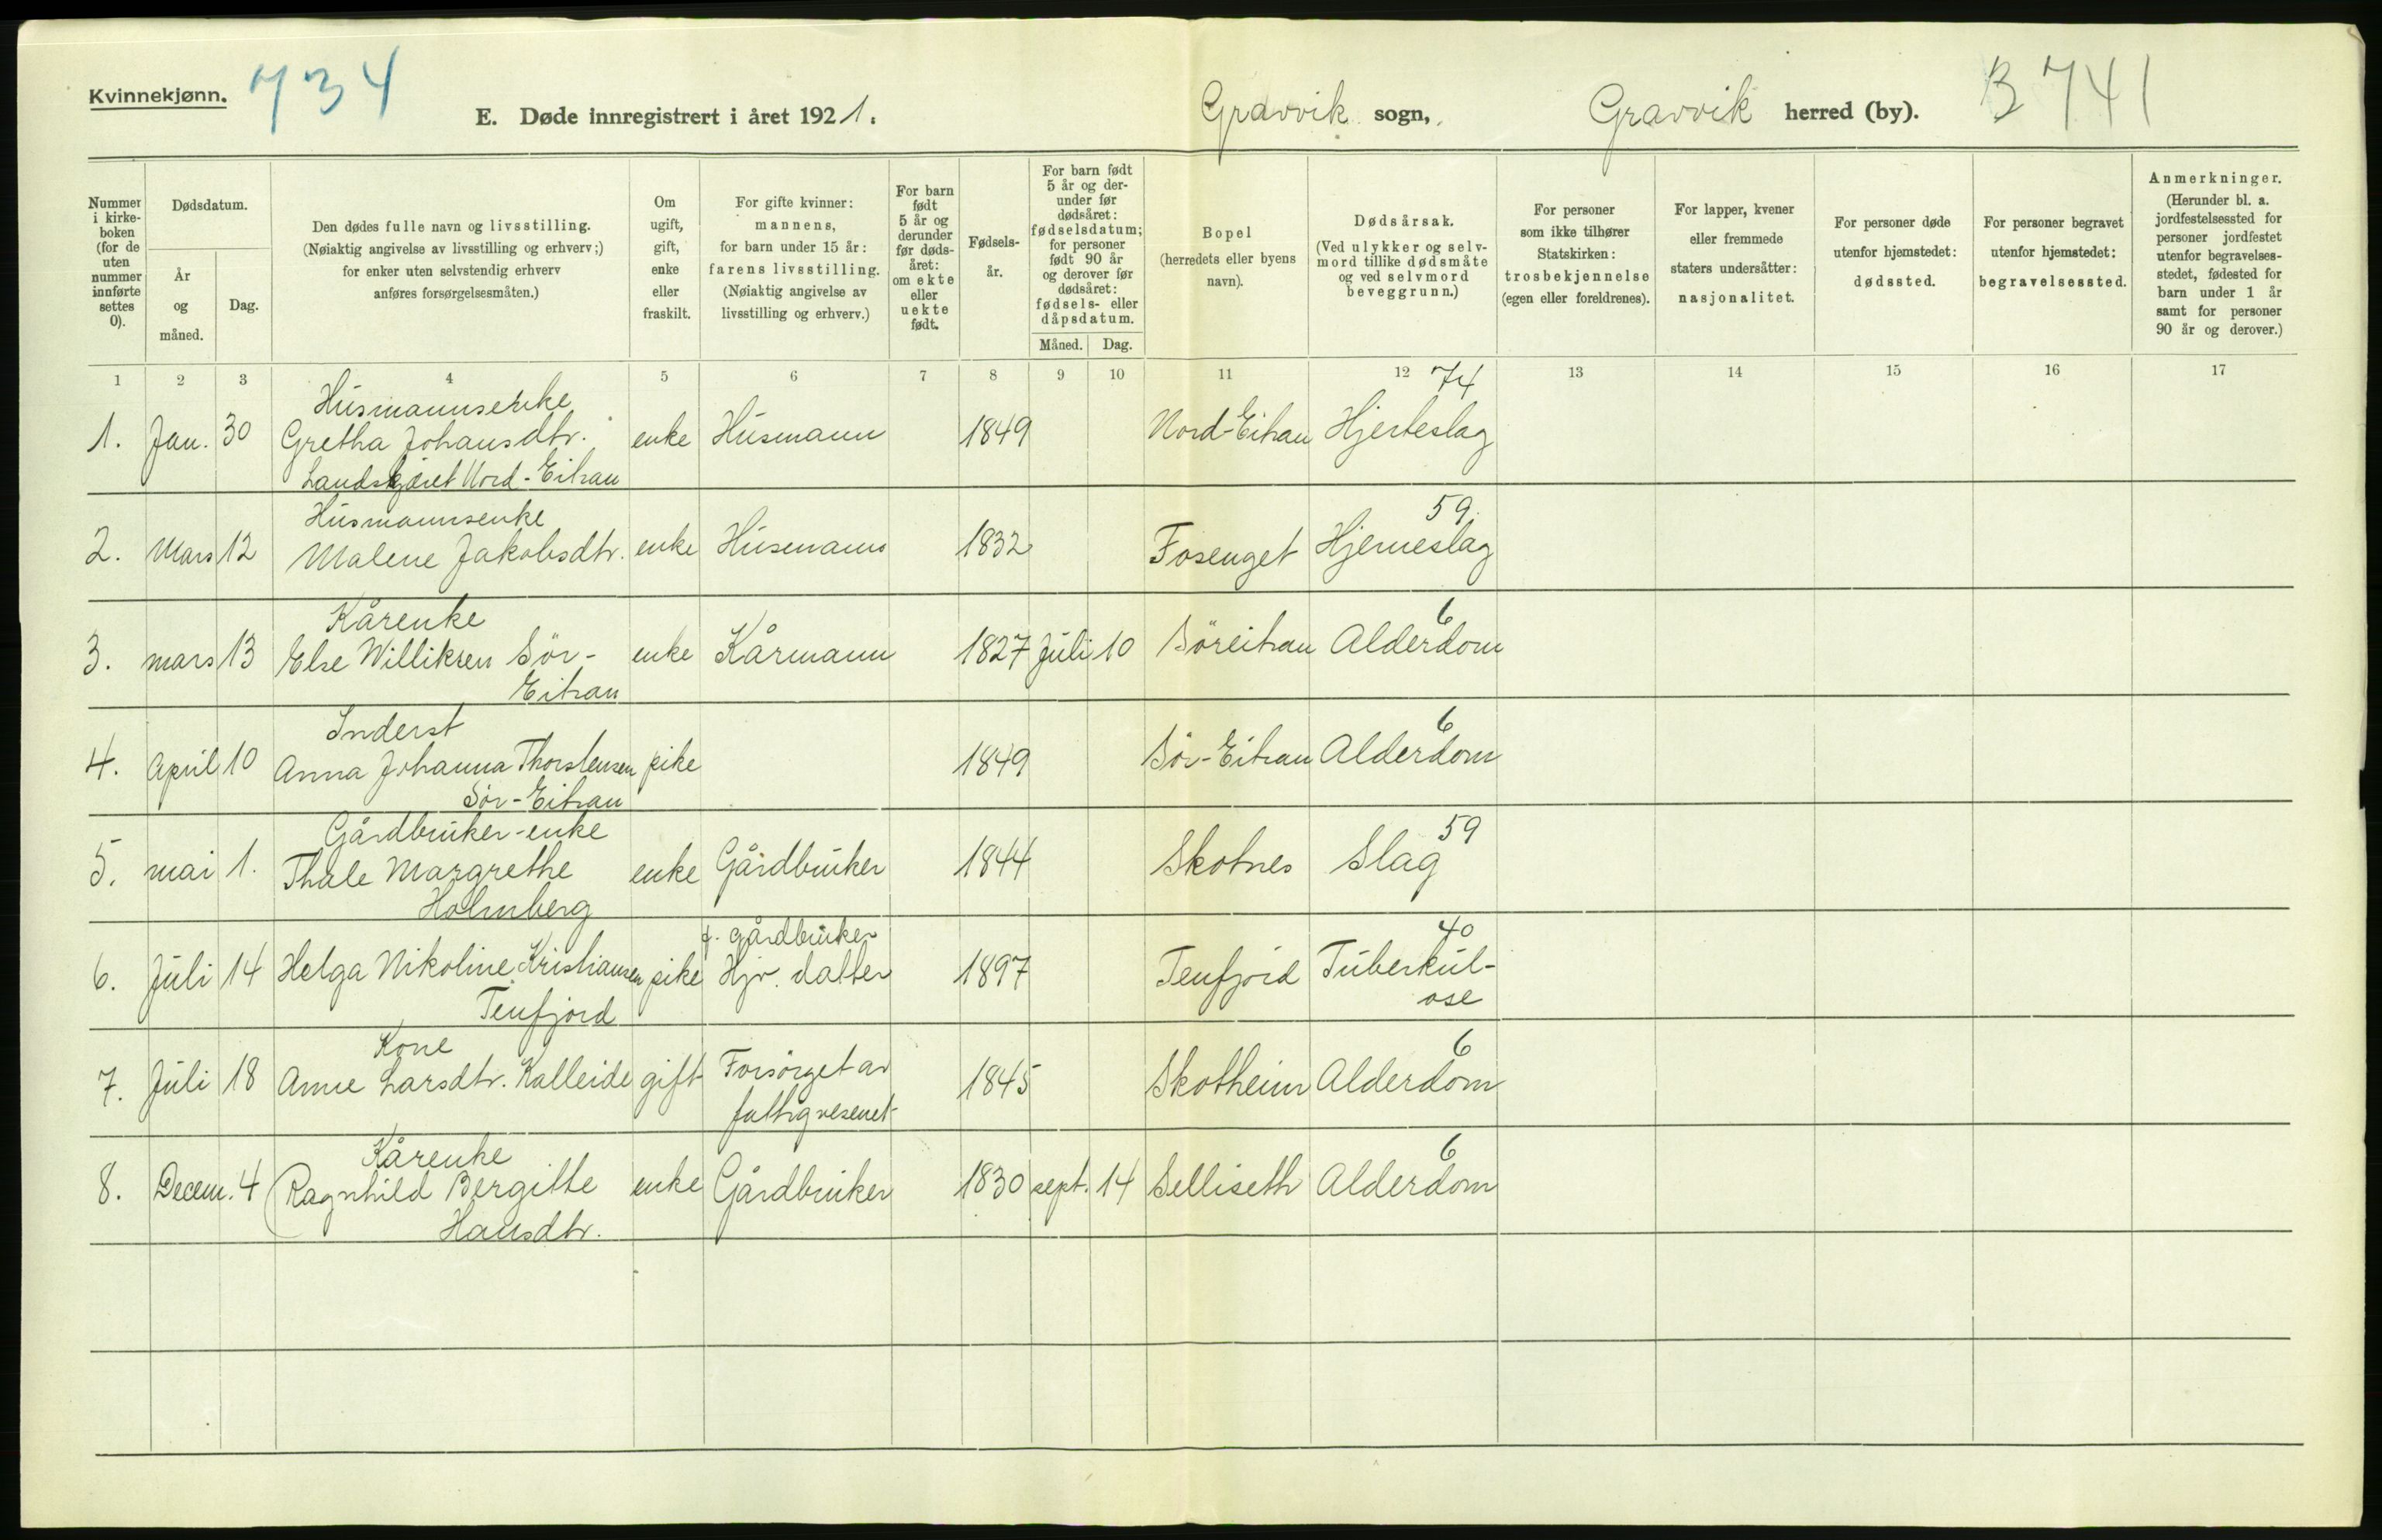 Kvinnekjønn. 734
E. Døde innregistrert i året 1921. Gravvik sogn, Gravvik herred (by). B 741
Nummer i kirke-boken (for de uten nummer innførte settes 0).
Dødsdatum.
År og måned.
Dag.
Den dødes fulle navn og livsstilling.
(Nøiaktig angivelse av livsstilling og erhverv;)
for enker uten selvstendig erhverv
anføres forsørgelsesmåten.)
Om ugift, gift, enke eller fraskilt.
For gifte kvinner:
mannens,
for barn under 15 år:
farens livsstilling.
(Nøiaktig angivelse av
livsstilling og erhverv.)
For barn født 5 år og derunder før døds-året: om ekte eller uekte født.
Fødsels-år.
For barn født 5 år og der-under før dødsåret: fødselsdatum; for personer født 90 år og derover før dødsåret: fødsels- eller dåpsdatum.
Måned. Dag.
Bopel
(herredets eller byens
navn).
Dødsårsak.
(Ved ulykker og selv-
mord tillike dødsmåte
og ved selvmord
beveggrunn.)
For personer
som ikke tilhører
Statskirken:
trosbekjennelse
(egen eller foreldrenes).
For lapper, kvener
eller fremmede
staters undersåtter:
nasjonalitet.
For personer døde
utenfor hjemstedet:
dødssted.
For personer begravet
utenfor hjemstedet:
begravelsessted.
Anmerkninger.
(Herunder bl. a.
jordfestelsessted for
personer jordfestet
utenfor begravelses-
stedet, fødested for
barn under 1 år
samt for personer
90 år og derover.)
1 2 3 4 5 6 7 8 9 10 11 12 13 14 15 16 17
Husmannsenke 74
1. Jan. 30 Gretha Johansdtr. enke Husmann 1849 Nord-Eitran Hjerteslag
Landskjæret Nord-Eitran
Husmannsenke 59.
2. Mars 12 Malene Jakobsdtr. enke Husmann 1832 Fosenget Hjerneslag
Kårenke 6
3. mars 13 Else Williksen Sør- enke Kårmann 1827 Juli 10 Söreitran Alderdom
Eitran
Inderst 6
4. April 10 Anna Johanna Thorstensen pike 1849 Sör-Eitran Alderdom
Sör-Eitran
Gårdbruker-enke 59
5. mai 1. Thale Margrethe enke Gårdbruker 1844 Skotnes Slag
Holmberg
f. gårdbruker 40
6. Juli 14 Helga Nikoline Kristiansen pike Hjv. datter 1897 Teufjord Tuberkul-
Teufjord ose
Kone 6
7. Juli 18 Anne Larsdtr. Kalleide gift Forsörget av 1845 Skotheim Alderdom
fattigvesenet
Kårenke 6
8. Decem. 4 Ragnhild Bergitte enke Gårdbruker 1830 sept. 14 Selliseth Alderdom
Hansdtr.